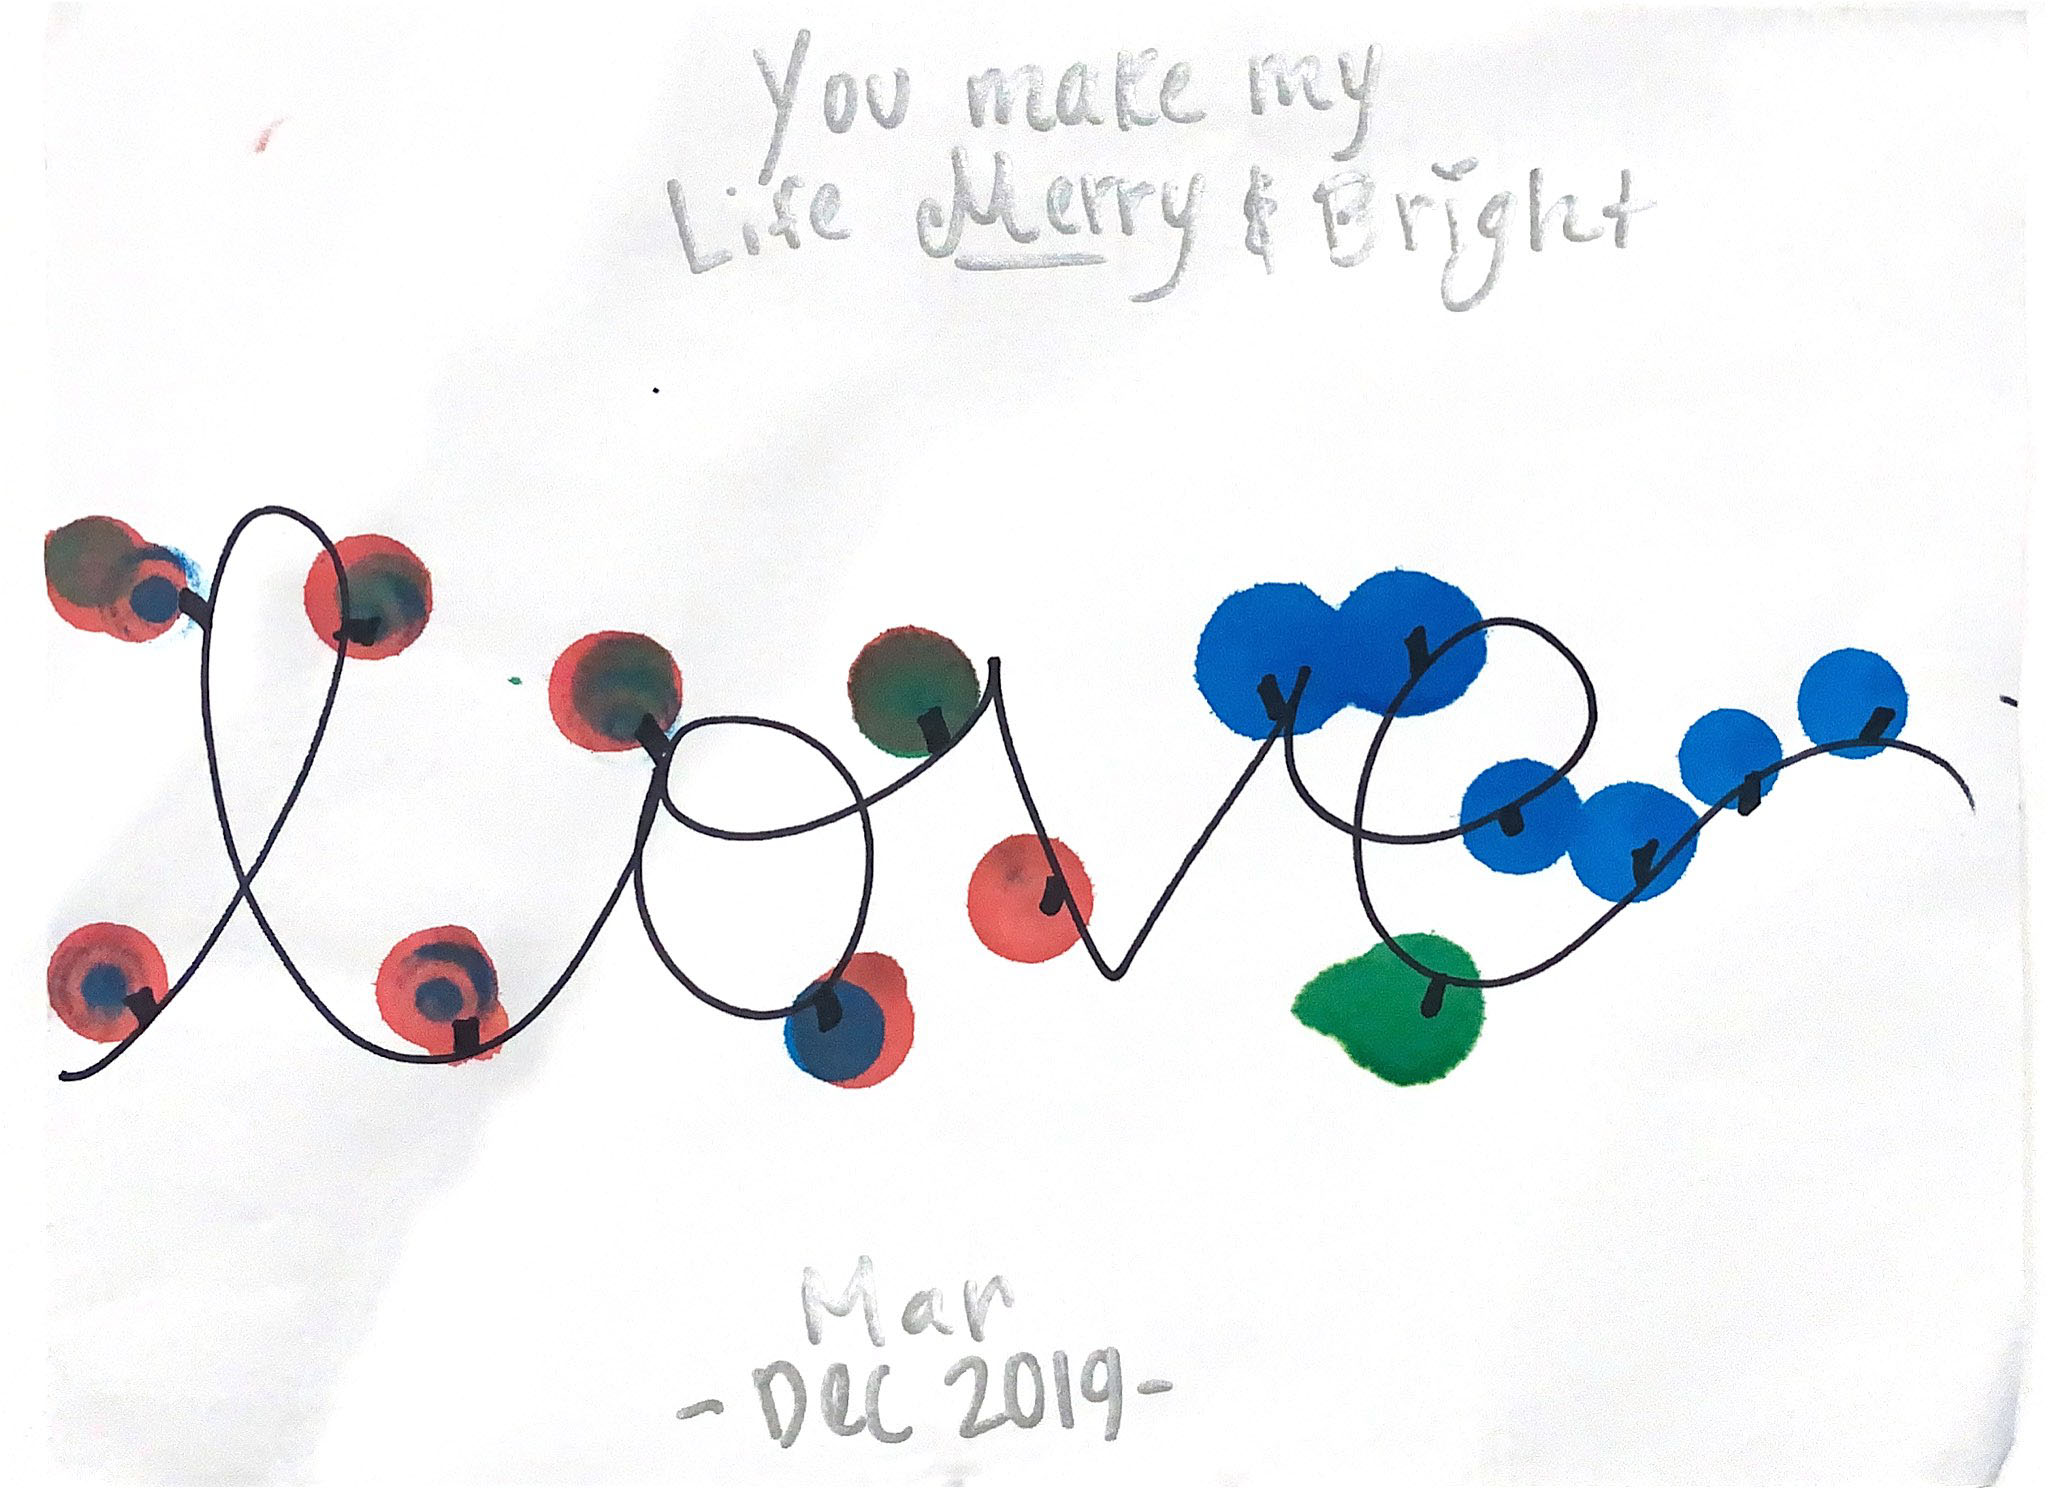 You make my
Life Merry & Bright
love
Mar
- Dec 2019 -